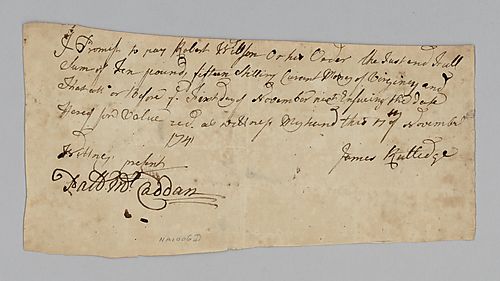 I Promise to pay Robert Willson Or his Order the Just and full
Sum of Ten pound, fifteen Shilling Current Money of Virginia, and
That att or Before ye first day of November next Ensuing the Date
Hereof for Value recd. as wittness My hand this 17th of November
1741
James Rutledge
Wittness present
McCaddan
NA1006D